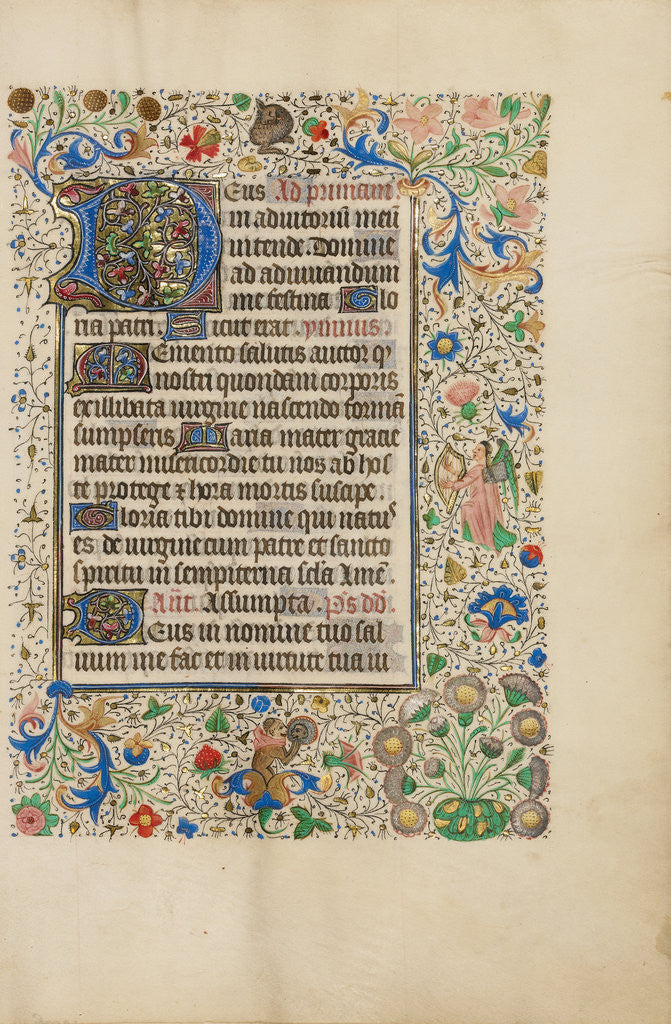 Deus Ad primam.
in adiutoriū meū
intende. Domine
ad adiuuandum
me festina Glo
ria patri. Sicut erat. ymnus.
Memento salutis auctor qͥ
nostri quondam corporis
ex illibata uirgine nascendo formā
sumpseris. Maria mater gracie
mater misericordie tu nos ab hos
te protege ⁊ hora mortis suscipe.
Gloria tibi domine qui natus
es de uirgine cum patre et sancto
spiritu in sempiterna sc̄la Amē.
Añt. Assumpta. p̄s dd̄.
Deus in nomine tuo sal
uum me fac et in uirtute tua iu